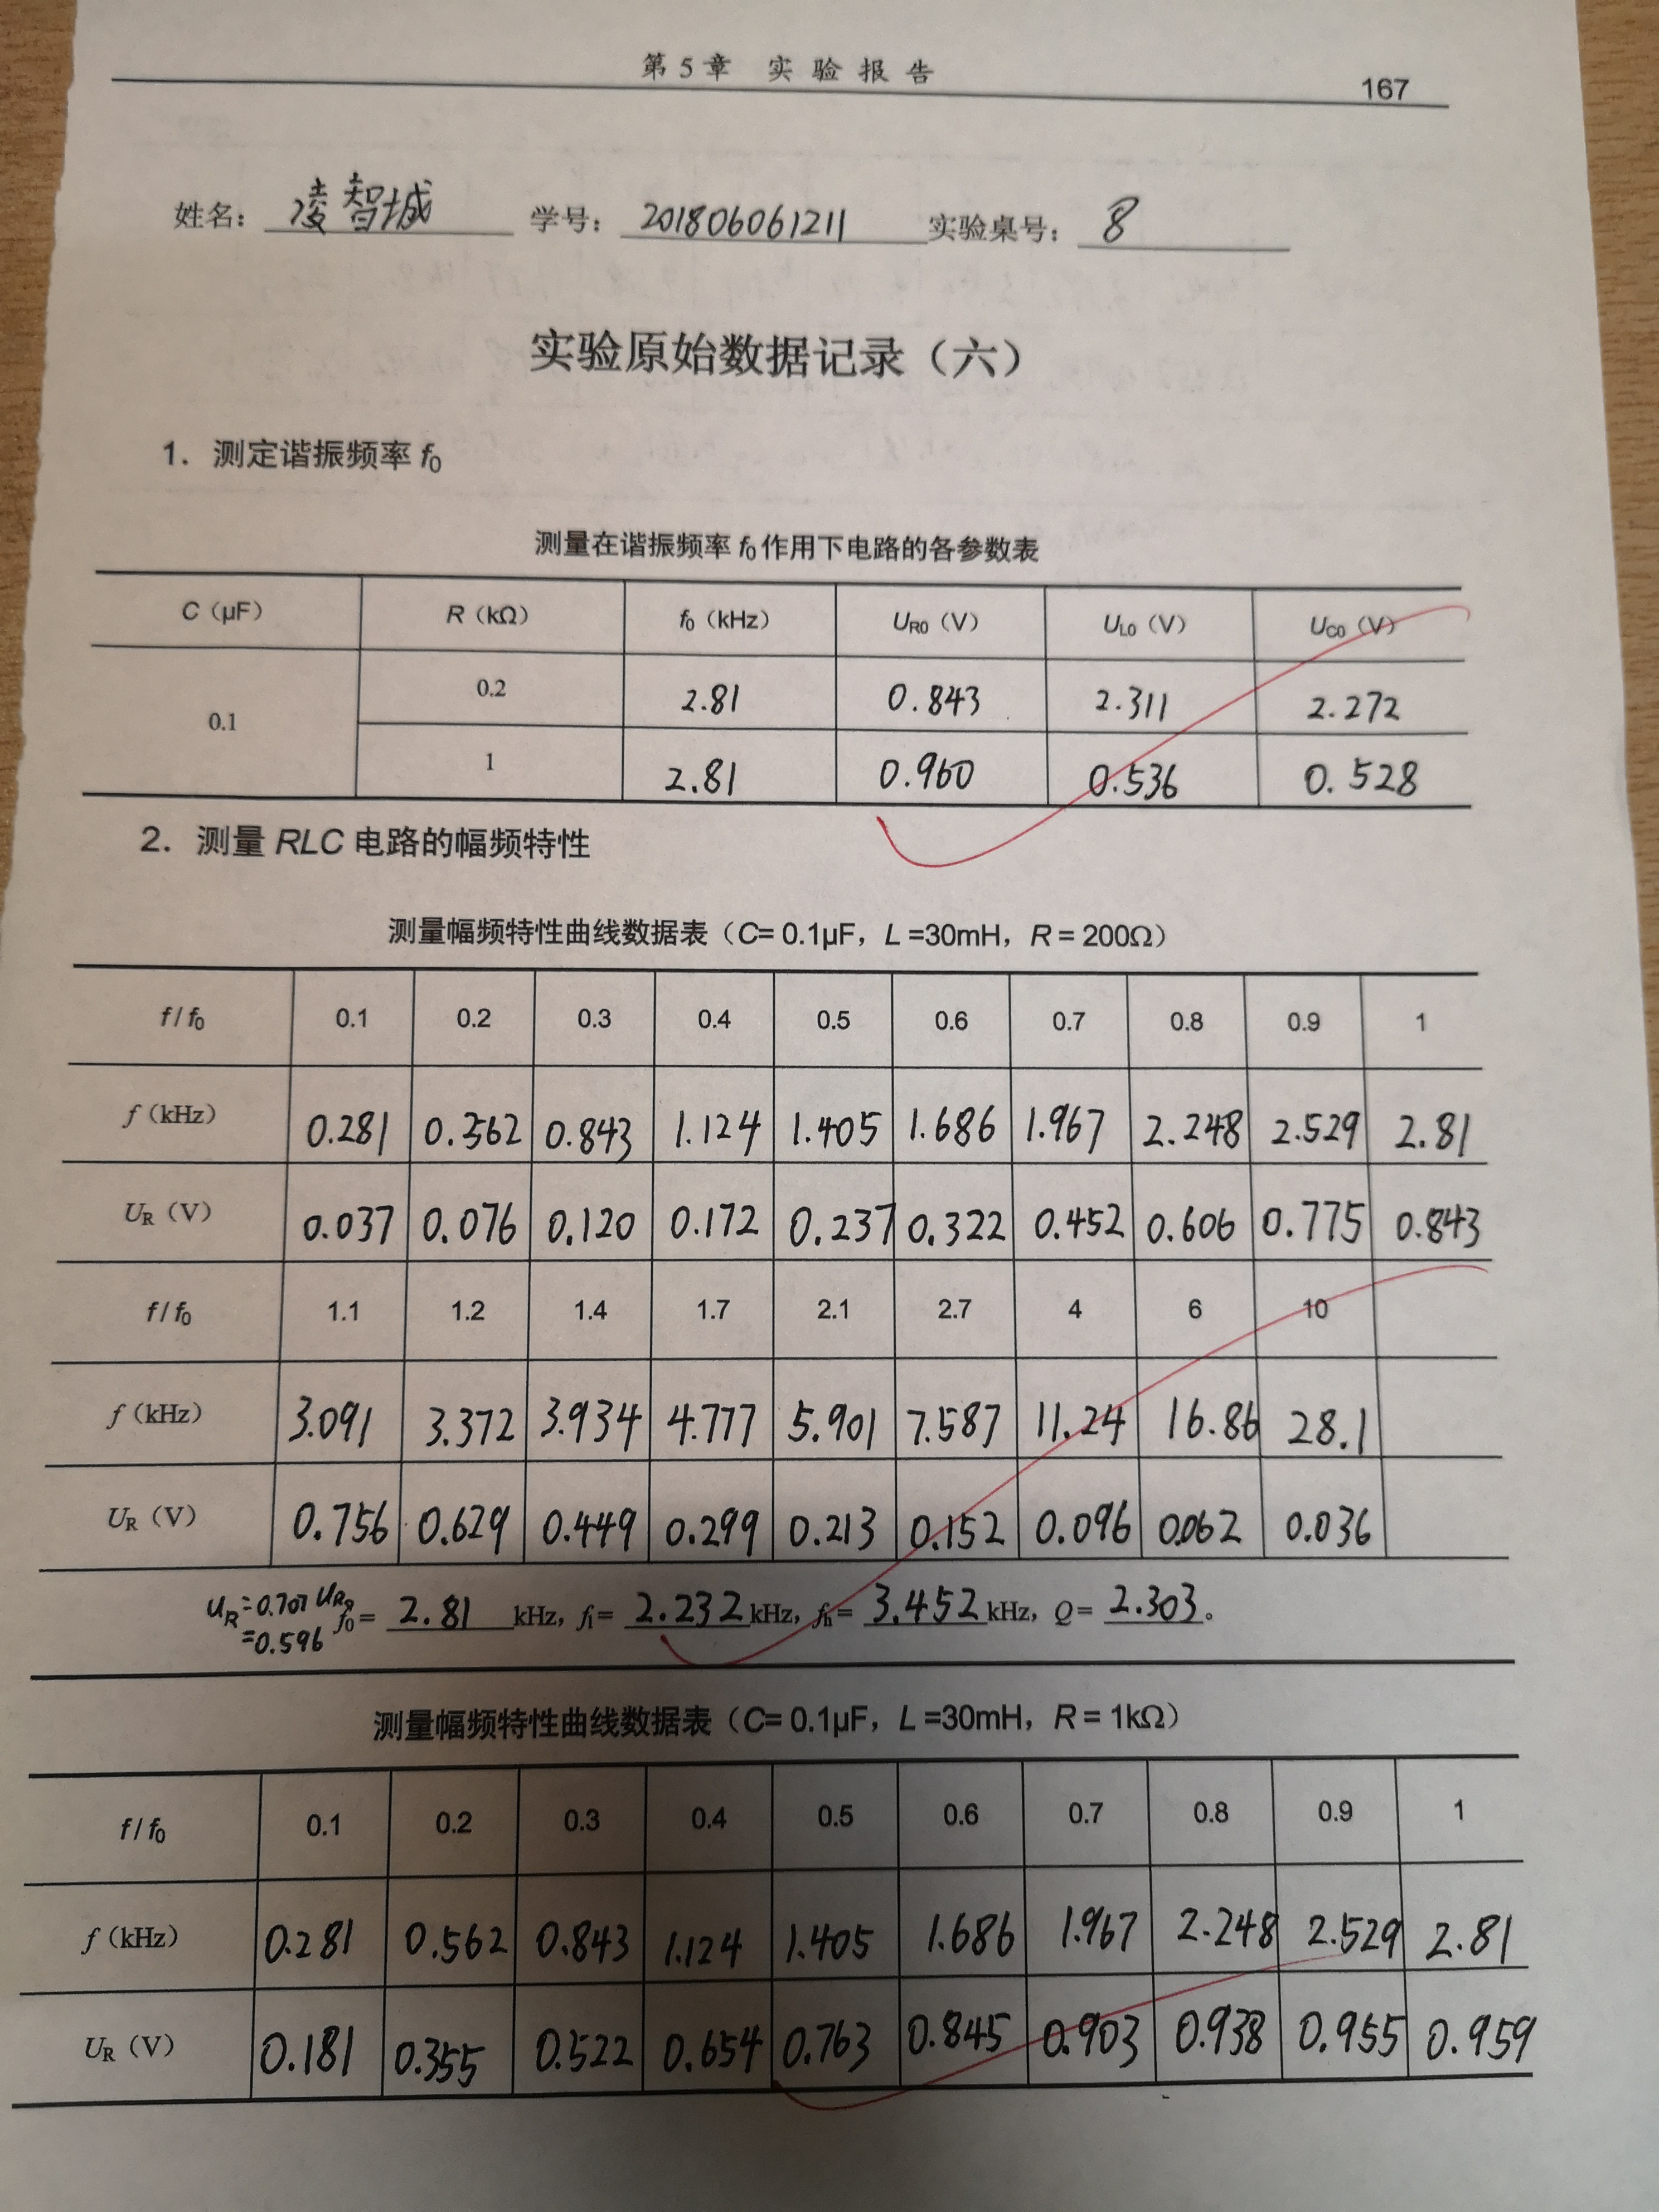 第5章 实验报告 167
姓名: 凌智城 学号: 201806061211 实验桌号: 8
实验原始数据记录（六）
1. 测定谐振频率 f0
测量在谐振频率 f0 作用下电路的各参数表
C（μF） R（kΩ） f0（kHz） UR0（V） UL0（V） UC0（V）
0.1 0.2 2.81 0.843 2.311 2.272
1 2.81 0.960 0.536 0.528
2. 测量 RLC 电路的幅频特性
测量幅频特性曲线数据表（C= 0.1μF，L =30mH，R = 200Ω）
f / f0 0.1 0.2 0.3 0.4 0.5 0.6 0.7 0.8 0.9 1
f（kHz） 0.281 0.562 0.843 1.124 1.405 1.686 1.967 2.248 2.529 2.81
UR（V） 0.037 0.076 0.120 0.172 0.237 0.322 0.452 0.606 0.775 0.843
f / f0 1.1 1.2 1.4 1.7 2.1 2.7 4 6 10
f（kHz） 3.091 3.372 3.934 4.777 5.901 7.587 11.24 16.86 28.1
UR（V） 0.756 0.629 0.449 0.299 0.213 0.152 0.096 0.062 0.036
UR=0.707 UR0
=0.596
f0= 2.81 kHz, fl= 2.232 kHz, fh= 3.452 kHz, Q= 2.303。
测量幅频特性曲线数据表（C= 0.1μF，L =30mH，R = 1kΩ）
f / f0 0.1 0.2 0.3 0.4 0.5 0.6 0.7 0.8 0.9 1
f（kHz） 0.281 0.562 0.843 1.124 1.405 1.686 1.967 2.248 2.529 2.81
UR（V） 0.181 0.355 0.522 0.654 0.763 0.845 0.903 0.938 0.955 0.959